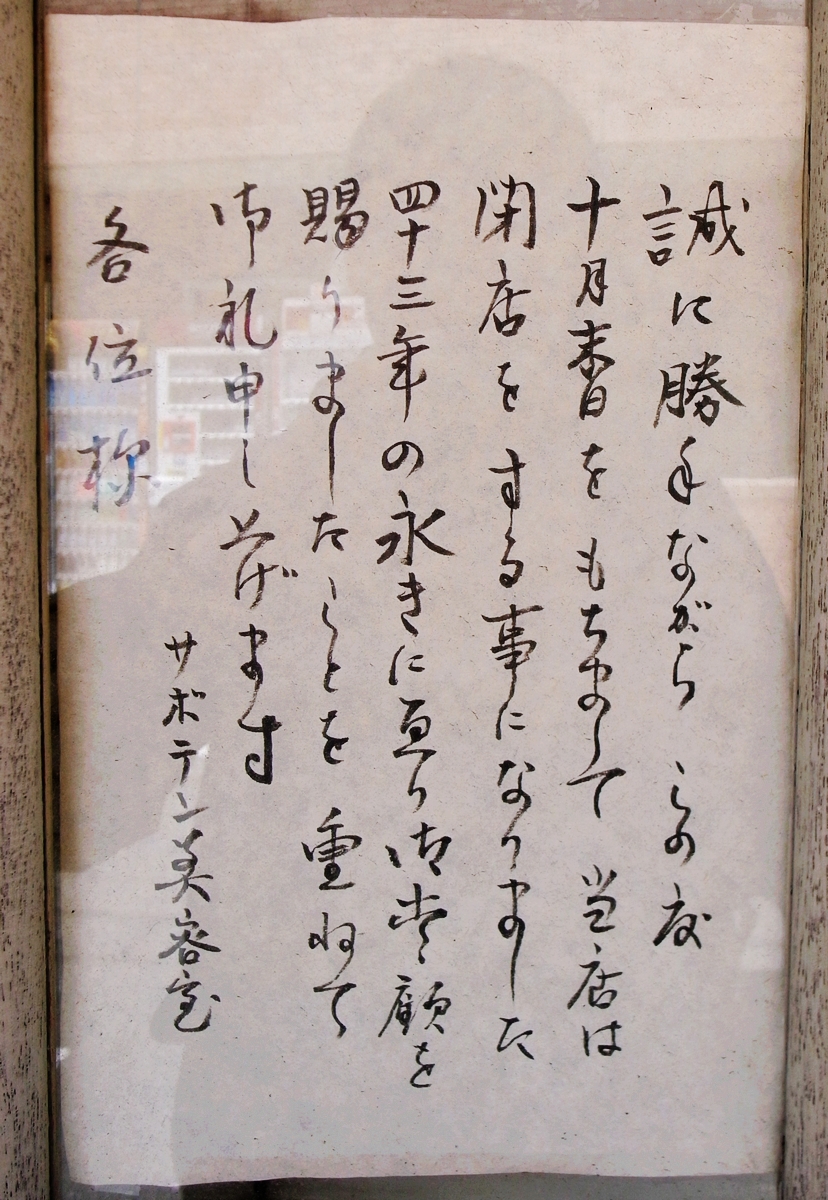 誠に勝手ながら この度
十月末日をもちまして 当店は
閉店をする事になりました
四十三年の永きに亘り御愛顧を
賜りましたことを 重ねて
御礼申し上げます
サボテン美容室
各位様